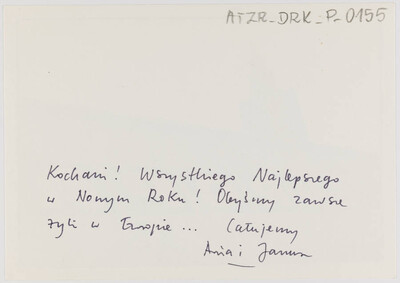 ATZR_DRK_P_0155
Kochani! Wszystkiego Najlepszego
w Nowym Roku! Obyśmy zawsze
żyli w Europie... Całujemy
Ania i Janusz